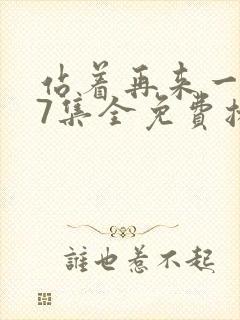 佔着再来一
7集全免費
誰也惹不起